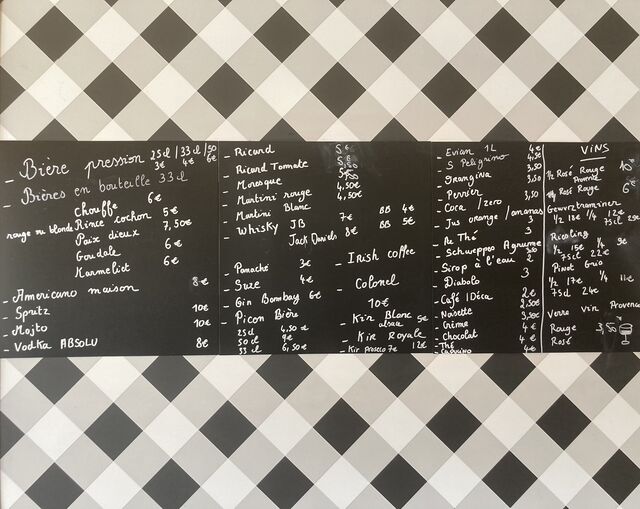 - Bière pression 25cl / 33cl / 50
3€ 4€ 6€
- Bières en bouteille 33cl
chouffe 6€
rouge ou blonde Rince cochon 5€
Paix dieux 7,50€
Goudale 6€
Karmeliet 6€
- Americano maison 8€
- Spritz 10€
- Mojto 10€
- Vodka ABSOLU 8€
- Ricard 5€
- Ricard Tomate
- Moresque
- Martini rouge 4,50€
- Martini Blanc 4,50€
- Whisky JB 7€ BB 4€
Jack Daniels 8€ BB 5€
- Panaché 3€
- Suze 4€
- Gin Bombay 6€
- Picon Bière
25cl 4,50€
50cl 9€
33cl 6,50€
- Irish coffee
- Colonel
10€
- Kir Blanc 5€
alsace
- Kir Royale 12€
- Kir Proseco 7€
- Evian 1L 4€
- S Peligrino 4,50
- Orangina 3,50
- Perrier 3,50
- Coca / zero 3,50
- Jus orange / ananas
- Ice Thé 3
- Schweppes Agrume 3,50
- Sirop à l'eau 2
- Diabolo 3
- Café / Déca 2€
- Noisette 2,50€
- Crème 3,50€
- Chocolat 4€
- Thé 4€
- Capucino 4€
VINS
1/2 Rosé Rouge 10€
Provence
1/4 Rosé Rouge 6€
Gewurtzraminer
1/2 18€ 1/4 12€
75cl 25€
Riesling
1/2 15€ 1/4 9€
75cl 22€
Pinot Grio
1/2 17€ 1/4 11€
75cl 24€
Verre vin Provence
Rouge 3,50
Rosé